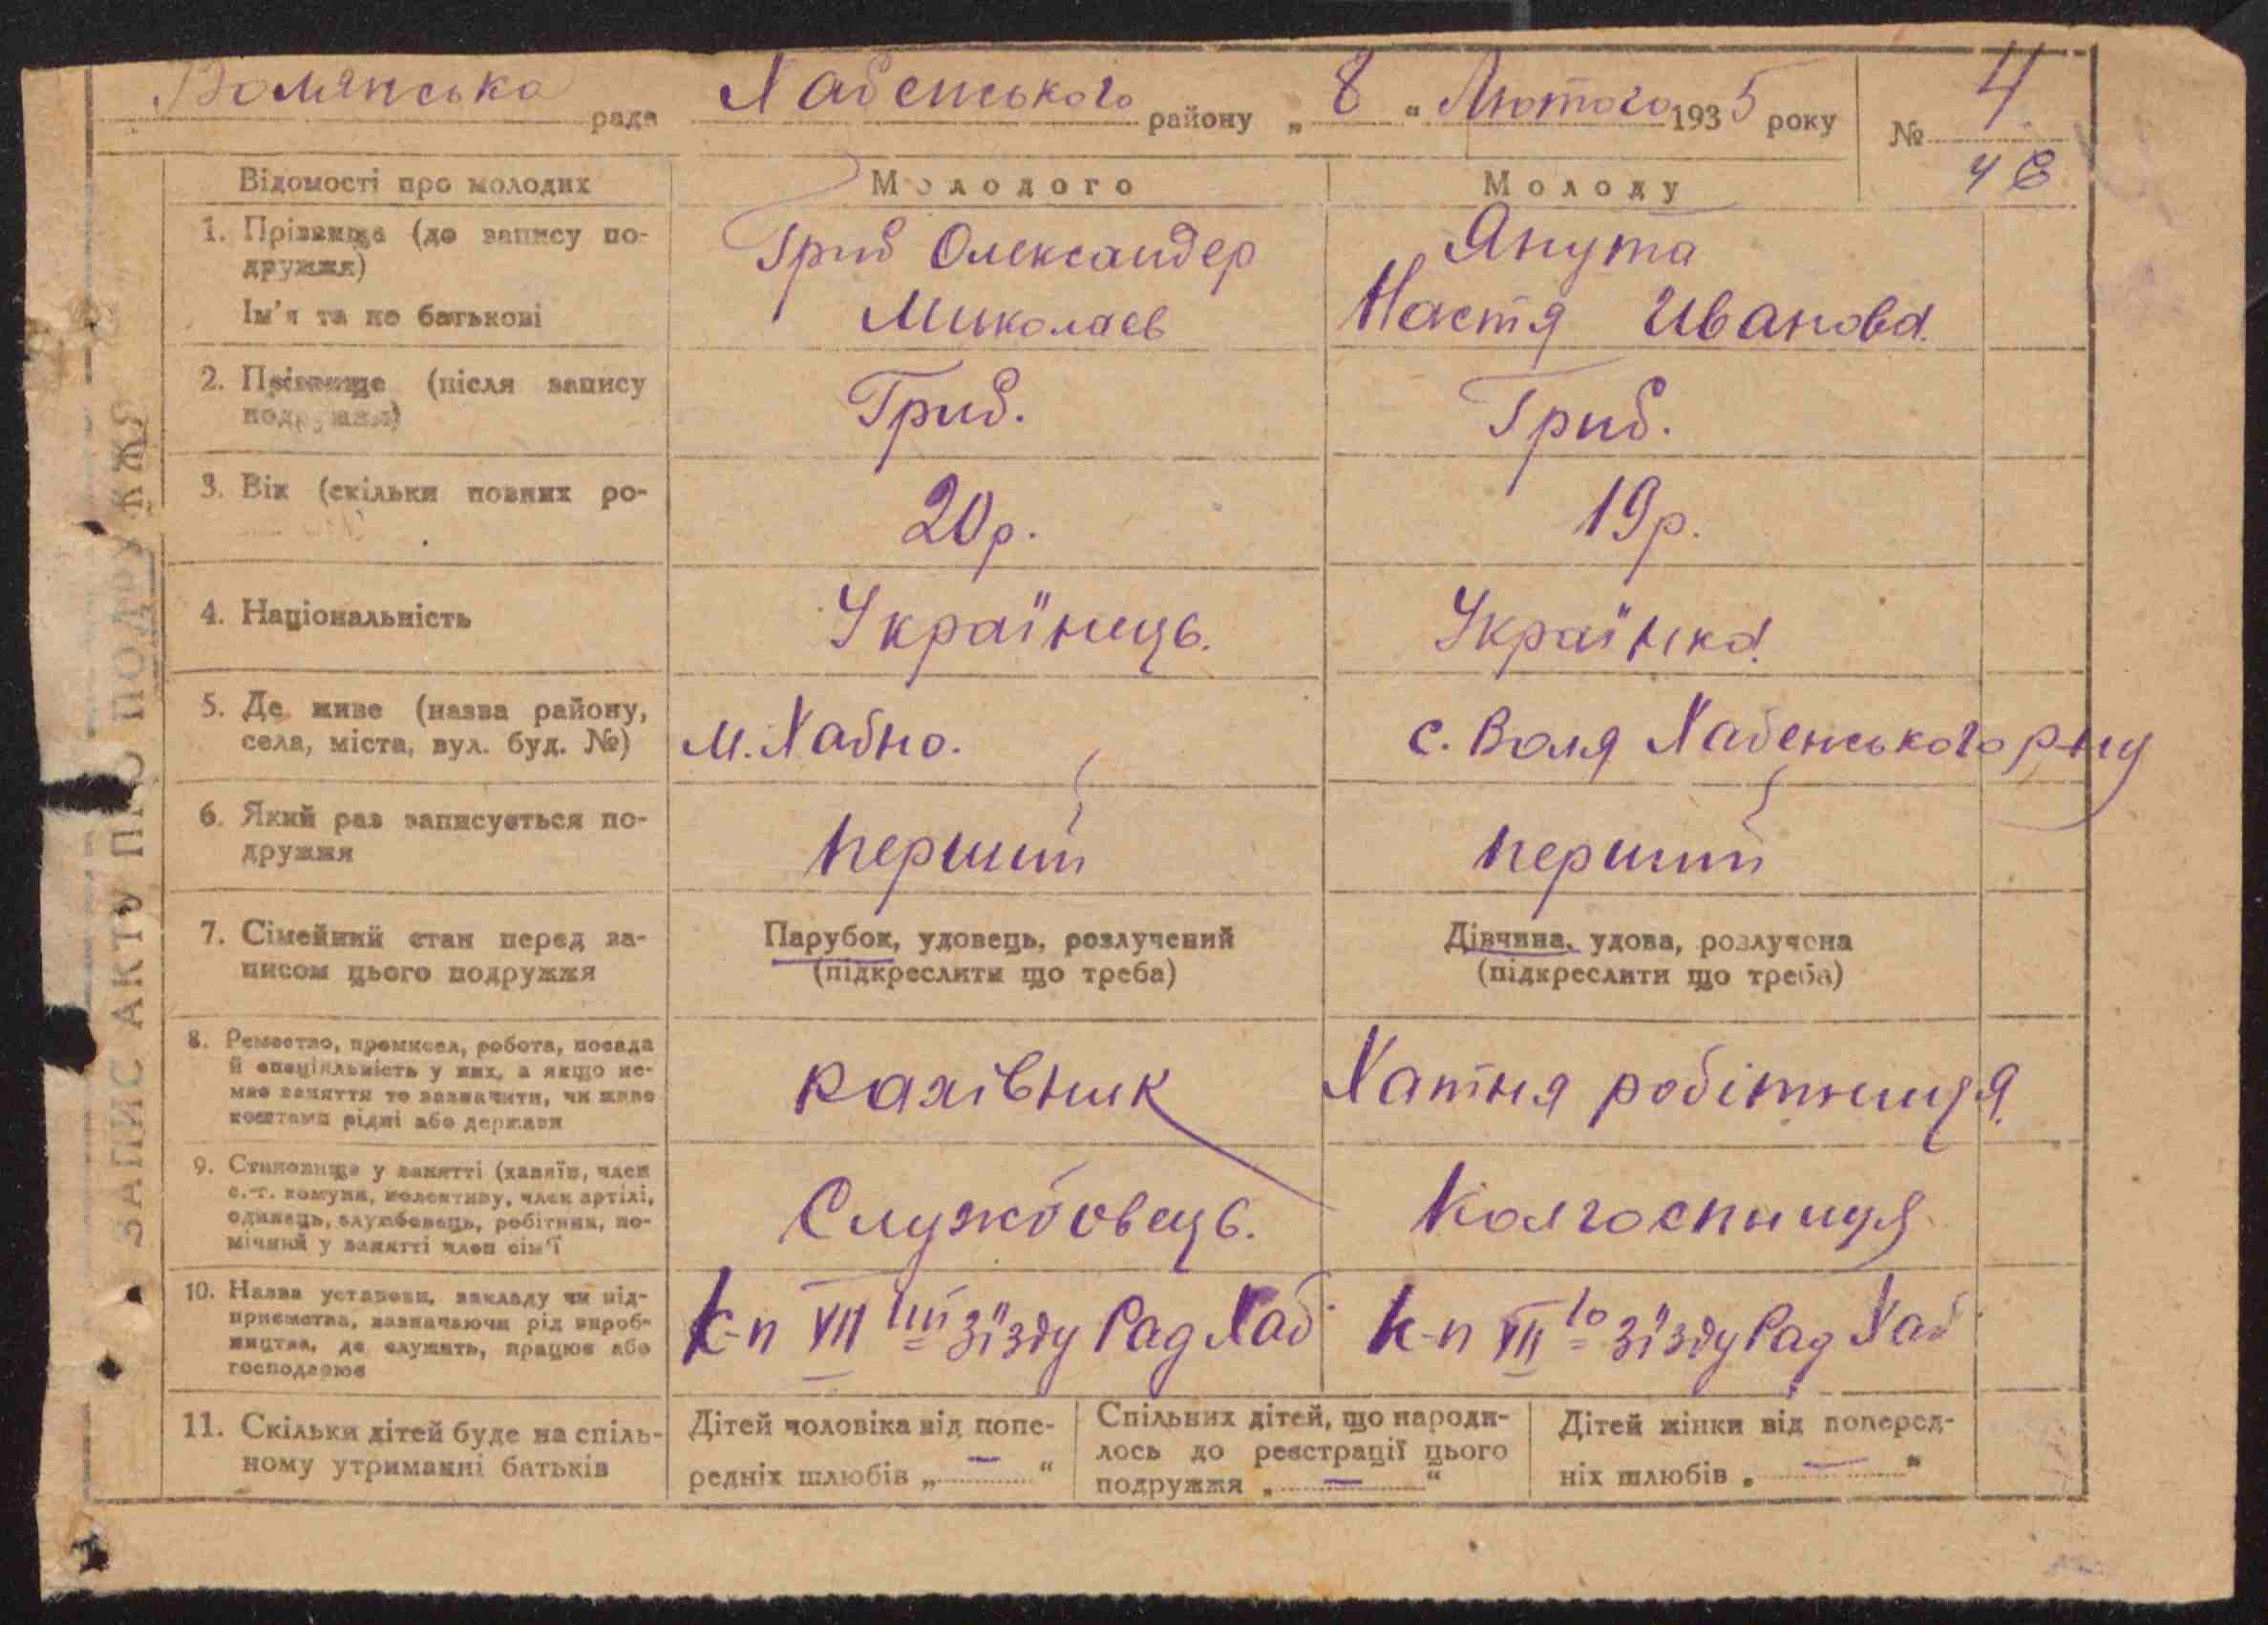 Волянська рада Хабенського району „ 8 “ Лютого 1935 року № 4
ЗАПИС АКТУ ПРО ПОДРУЖЖЯ
Відомості про молодих
Молодого
Молоду
1. Прізвище (до запису по-
дружжя)
Ім'я та по батькові
Гриб Олександер
Миколаєв
Янута
Настя Иванова.
2. Прізвище (після запису
подружжя)
Гриб.
Гриб.
3. Вік (скільки повних ро-
20р.
19р.
4. Національність
Українець.
Українка.
5. Де живе (назва району,
села, міста, вул. буд. №)
м. Хабно.
с. Воля Хабенського р-ну
6. Який раз записується по-
дружжя
перший
перший
7. Сімейний стан перед за-
писом цього подружжя
Парубок, удовець, розлучений
(підкреслити що треба)
Дівчина, удова, розлучена
(підкреслити що треба)
8. Ремество, промисел, робота, посада
й спеціяльність у них, а якщо не-
має заняття то зазначити, чи живе
коштами рідні або держави
рахівник
Хатня робітниця.
9. Становище у занятті (хазяїн, член
с.-г. комуни, колективу, член артілі,
одинець, службовець, робітник, по-
мічний у занятті член сім'ї
Службовець.
Колгоспниця
10. Назва установи, закладу чи під-
приємства, зазначаючи рід вироб-
ництва, де служить, працює або
господарює
К-п VII зїзду Рад Хаб.
К-п VII го зїзду Рад Хаб.
11. Скільки дітей буде на спіль-
ному утриманні батьків
Дітей чоловіка від попе-
редніх шлюбів „ — “
Спільних дітей, що народи-
лось до реєстрації цього
подружжя „ — “
Дітей жінки від поперед-
ніх шлюбів „ — “